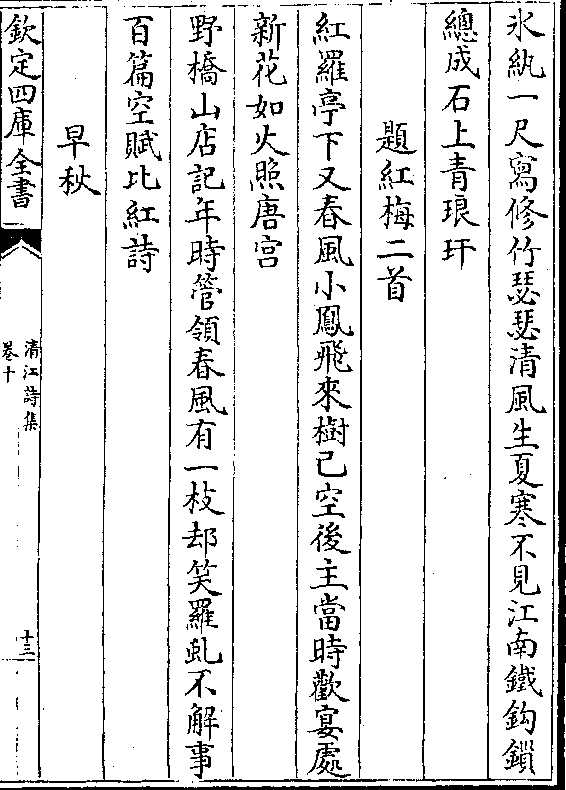 氷紈一尺寫修竹瑟瑟清風生夏寒不見江南鐵鈎鎖
總成石上青琅玕
題紅梅二首
紅羅亭下又春風小鳳飛來樹已空後主當時歡宴處
新花如火照唐宫
野橋山店記年時管領春風有一枝却笑羅虬不解事
百篇空賦比紅詩
早秋
欽定四庫全書
清江詩集
卷十
十三